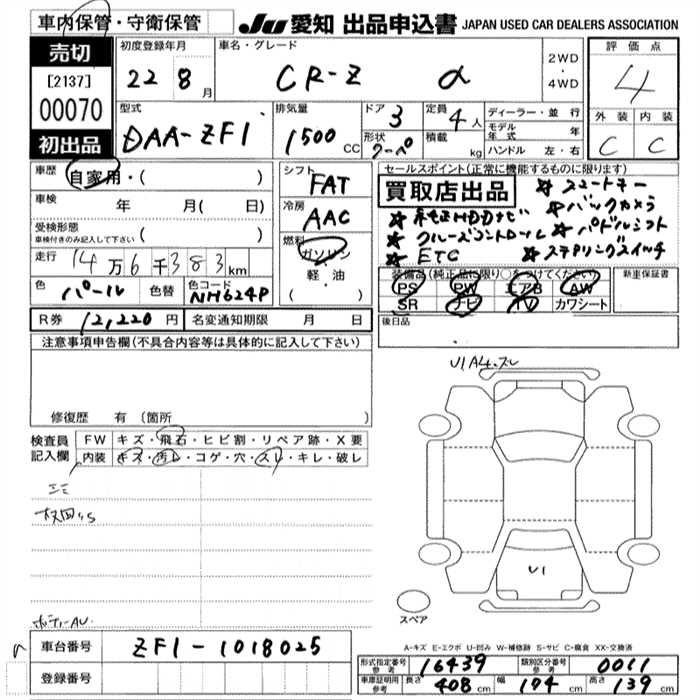 車内保管・守衛保管
JU 愛知 出品申込書 JAPAN USED CAR DEALERS ASSOCIATION
売切
[2137]
00070
初出品
初度登録年月
22 8月
車名・グレード
CR-Z α
2WD
・
4WD
評価点
4
外装 内装
C C
型式
DAA-ZF1
排気量
1500 CC
ドア 3
形状 クーペ
定員 4人
積載 kg
ディーラー・並行
モデル年式 年
ハンドル 左・右
車歴
自家用・( )
車検 年 月( 日)
受検形態
車検付きのみ記入して下さい ( )
走行 14万6千383km
色 パール 色替 色コード NH624P
シフト
FAT
冷房
AAC
燃料
ガソリン
・
軽・油
( )
セールスポイント(正常に機能するものに限ります)
買取店出品
★スマートキー
★純正HDDナビ ★バックカメラ
★クルーズコントロール ★パドルシフト
★ETC ★ステアリングスイッチ
装備品(純正品に限り○をつけてください)
PS PW エアB AW
SR ナビ TV カワシート
新車保証書
後日品
R券 12,220円 名変通知期限 月 日
注意事項申告欄(不具合内容等は具体的に記入して下さい)
修復歴 有〔箇所 〕
検査員記入欄
FW キズ・飛石・ヒビ割・リペア跡・X要
内装 キズ・汚レ・コゲ・穴・スレ・キレ・破レ
U1 A4.スレ
U1
スペア
A-キズ E-エクボ U-凹み W-補修跡 S-サビ C-腐食 XX-交換済
ボディーAU
車台番号 ZF1-1018025
登録番号
形式指定番号参考 16439 類別区分番号参考 0011
車庫証明用参考 長さ 408cm 幅 174cm 高さ 139cm